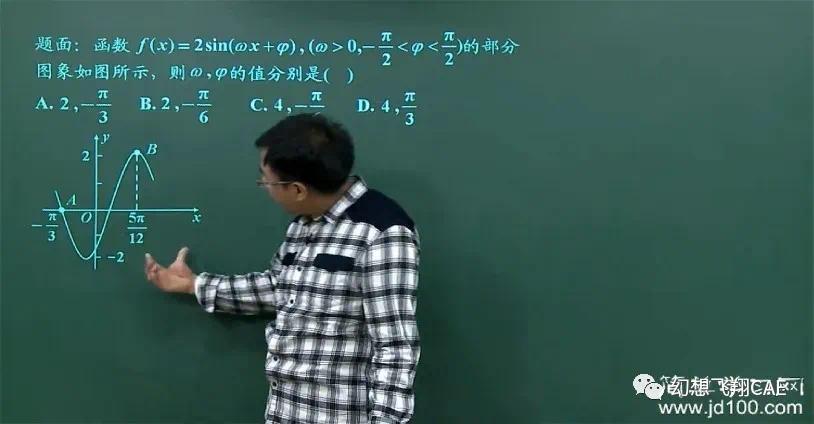 题面：函数 f(x)=2sin(ωx+φ),(ω>0,-π/2<φ<π/2)的部分
图象如图所示，则ω,φ的值分别是( )
A. 2,-π/3 B. 2,-π/6 C. 4,-π D. 4,π/3
y
2
B
A
O
x
-π/3
5π/12
-2
幻想飞翔CAE
www.jd100.com